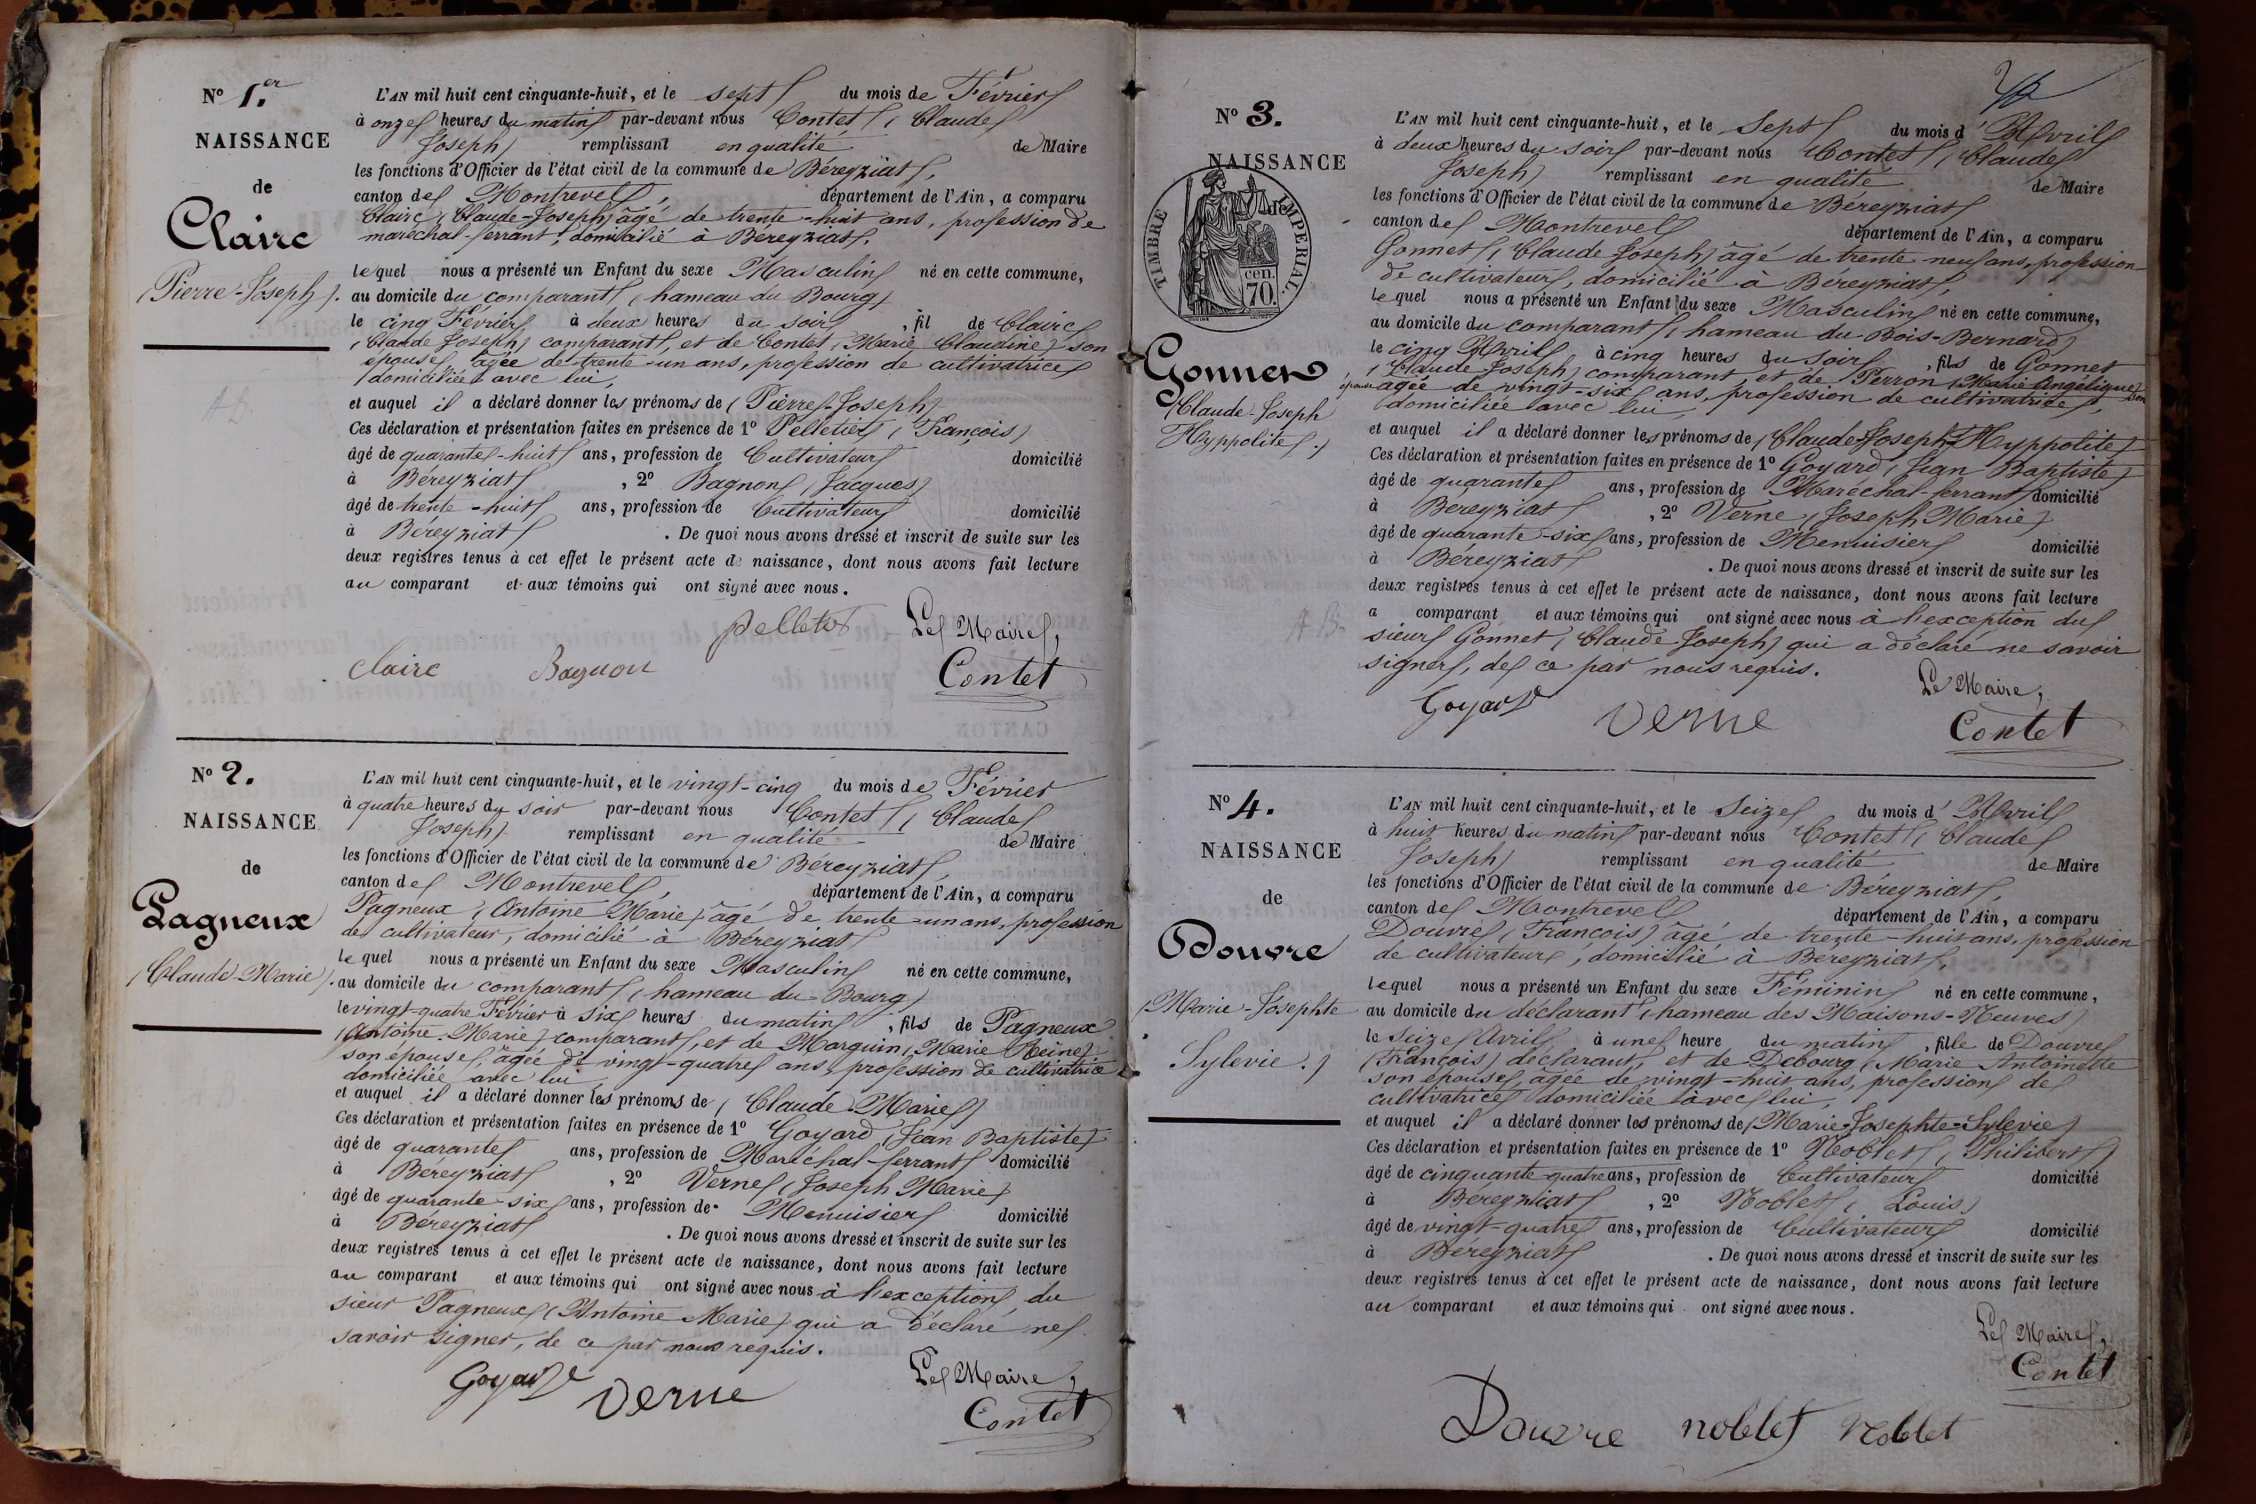 N° 1.er
NAISSANCE
de
Claire
(Pierre-Joseph).
L'AN mil huit cent cinquante-huit, et le sept du mois de Février
à onze heures du matin par-devant nous Contet (Claude
Joseph) remplissant en qualité de Maire
les fonctions d'Officier de l'état civil de la commune de Béreyziat,
canton de Montrevel, département de l'Ain, a comparu
Claire (Claude-Joseph) âgé de trente-huit ans, profession de
maréchal-ferrant, domicilié à Béreyziat,
lequel nous a présenté un Enfant du sexe Masculin né en cette commune,
au domicile du comparant (hameau du Bourg)
le cinq Février à deux heures du soir, fil de Claire
(Claude Joseph) comparant, et de Contet (Marie Claudine) son
épouse, âgée de trente-un ans, profession de cultivatrice
domiciliée avec lui,
et auquel il a déclaré donner les prénoms de (Pierre-Joseph)
Ces déclaration et présentation faites en présence de 1° Pelletier (François)
âgé de quarante-huit ans, profession de Cultivateur domicilié
à Béreyziat, 2° Bagnon (Jacques)
âgé de trente-huit ans, profession de Cultivateur domicilié
à Béreyziat. De quoi nous avons dressé et inscrit de suite sur les
deux registres tenus à cet effet le présent acte de naissance, dont nous avons fait lecture
au comparant et aux témoins qui ont signé avec nous.
pelletier Le Maire,
Claire Bagnon Contet
N° 2.
NAISSANCE
de
Pagneux
(Claude-Marie).
L'AN mil huit cent cinquante-huit, et le vingt-cinq du mois de Février
à quatre heures du soir par-devant nous Contet (Claude
Joseph) remplissant en qualité de Maire
les fonctions d'Officier de l'état civil de la commune de Béreyziat,
canton de Montrevel, département de l'Ain, a comparu
Pagneux (Antoine Marie) âgé de trente-un ans, profession
de cultivateur, domicilié à Béreyziat
lequel nous a présenté un Enfant du sexe Masculin né en cette commune,
au domicile du comparant (hameau du Bourg)
le vingt-quatre Février à six heures du matin, fils de Pagneux
(Antoine Marie) comparant, et de Morguin (Marie Reine)
son épouse, âgée de vingt-quatre ans, profession de cultivatrice
domiciliée avec lui
et auquel il a déclaré donner les prénoms de (Claude Marie)
Ces déclaration et présentation faites en présence de 1° Goyard (Jean Baptiste)
âgé de quarante ans, profession de Maréchal-ferrant domicilié
à Béreyziat, 2° Verne (Joseph Marie)
âgé de quarante-six ans, profession de Menuisier domicilié
à Béreyziat. De quoi nous avons dressé et inscrit de suite sur les
deux registres tenus à cet effet le présent acte de naissance, dont nous avons fait lecture
au comparant et aux témoins qui ont signé avec nous à l'exception du
sieur Pagneux (Antoine Marie) qui a déclaré ne
savoir signer, de ce par nous requis.
Goyard Verne Le Maire,
Contet
N° 3.
NAISSANCE
de
TIMBRE IMPERIAL.
70 cen.
Gonnet
(Claude-Joseph
Hyppolite.)
L'AN mil huit cent cinquante-huit, et le Sept du mois d'Avril
à deux heures du soir par-devant nous Contet (Claude
Joseph) remplissant en qualité de Maire
les fonctions d'Officier de l'état civil de la commune de Béreyziat
canton de Montrevel département de l'Ain, a comparu
Gonnet (Claude Joseph) âgé de trente-neuf ans, profession
de cultivateur, domicilié à Béreyziat,
lequel nous a présenté un Enfant du sexe Masculin né en cette commune,
au domicile du comparant (hameau du Bois-Bernard)
le cinq Avril à cinq heures du soir, fils de Gonnet
(Claude Joseph) comparant et de Perron (Marie Angélique) son
épouse âgée de vingt-six ans, profession de cultivatrice,
domiciliée avec lui,
et auquel il a déclaré donner les prénoms de (Claude-Joseph-Hyppolite)
Ces déclaration et présentation faites en présence de 1° Goyard (Jean Baptiste)
âgé de quarante ans, profession de Maréchal-ferrant domicilié
à Béreyziat, 2° Verne (Joseph Marie)
âgé de quarante-six ans, profession de Menuisier domicilié
à Béreyziat. De quoi nous avons dressé et inscrit de suite sur les
deux registres tenus à cet effet le présent acte de naissance, dont nous avons fait lecture
a comparant et aux témoins qui ont signé avec nous à l'exception du
sieur Gonnet (Claude Joseph) qui a déclaré ne savoir
signer, de ce par nous requis.
Goyard Verne Le Maire,
Contet
N° 4.
NAISSANCE
de
Douvre
(Marie-Josephte
Sylevie.)
L'AN mil huit cent cinquante-huit, et le Seize du mois d'Avril
à huit heures du matin par-devant nous Contet (Claude
Joseph) remplissant en qualité de Maire
les fonctions d'Officier de l'état civil de la commune de Béreyziat,
canton de Montrevel département de l'Ain, a comparu
Douvre (François) âgé de trente-huit ans, profession
de cultivateur, domicilié à Béreyziat,
lequel nous a présenté un Enfant du sexe Féminin né en cette commune,
au domicile du déclarant (hameau des Maisons-Neuves)
le Seize Avril à une heure du matin, fille de Douvre
(François) déclarant, et de Debourg (Marie Antoinette
son épouse, âgée de vingt-huit ans, profession de
cultivatrice domiciliée avec lui,
et auquel il a déclaré donner les prénoms de (Marie-Josephte-Sylevie)
Ces déclaration et présentation faites en présence de 1° Noblet (Philibert)
âgé de cinquante quatre ans, profession de Cultivateur domicilié
à Béreyziat, 2° Noblet (Louis)
âgé de vingt-quatre ans, profession de Cultivateur domicilié
à Béreyziat. De quoi nous avons dressé et inscrit de suite sur les
deux registres tenus à cet effet le présent acte de naissance, dont nous avons fait lecture
au comparant et aux témoins qui ont signé avec nous.
Le Maire,
Contet
Douvre noblet Noblet